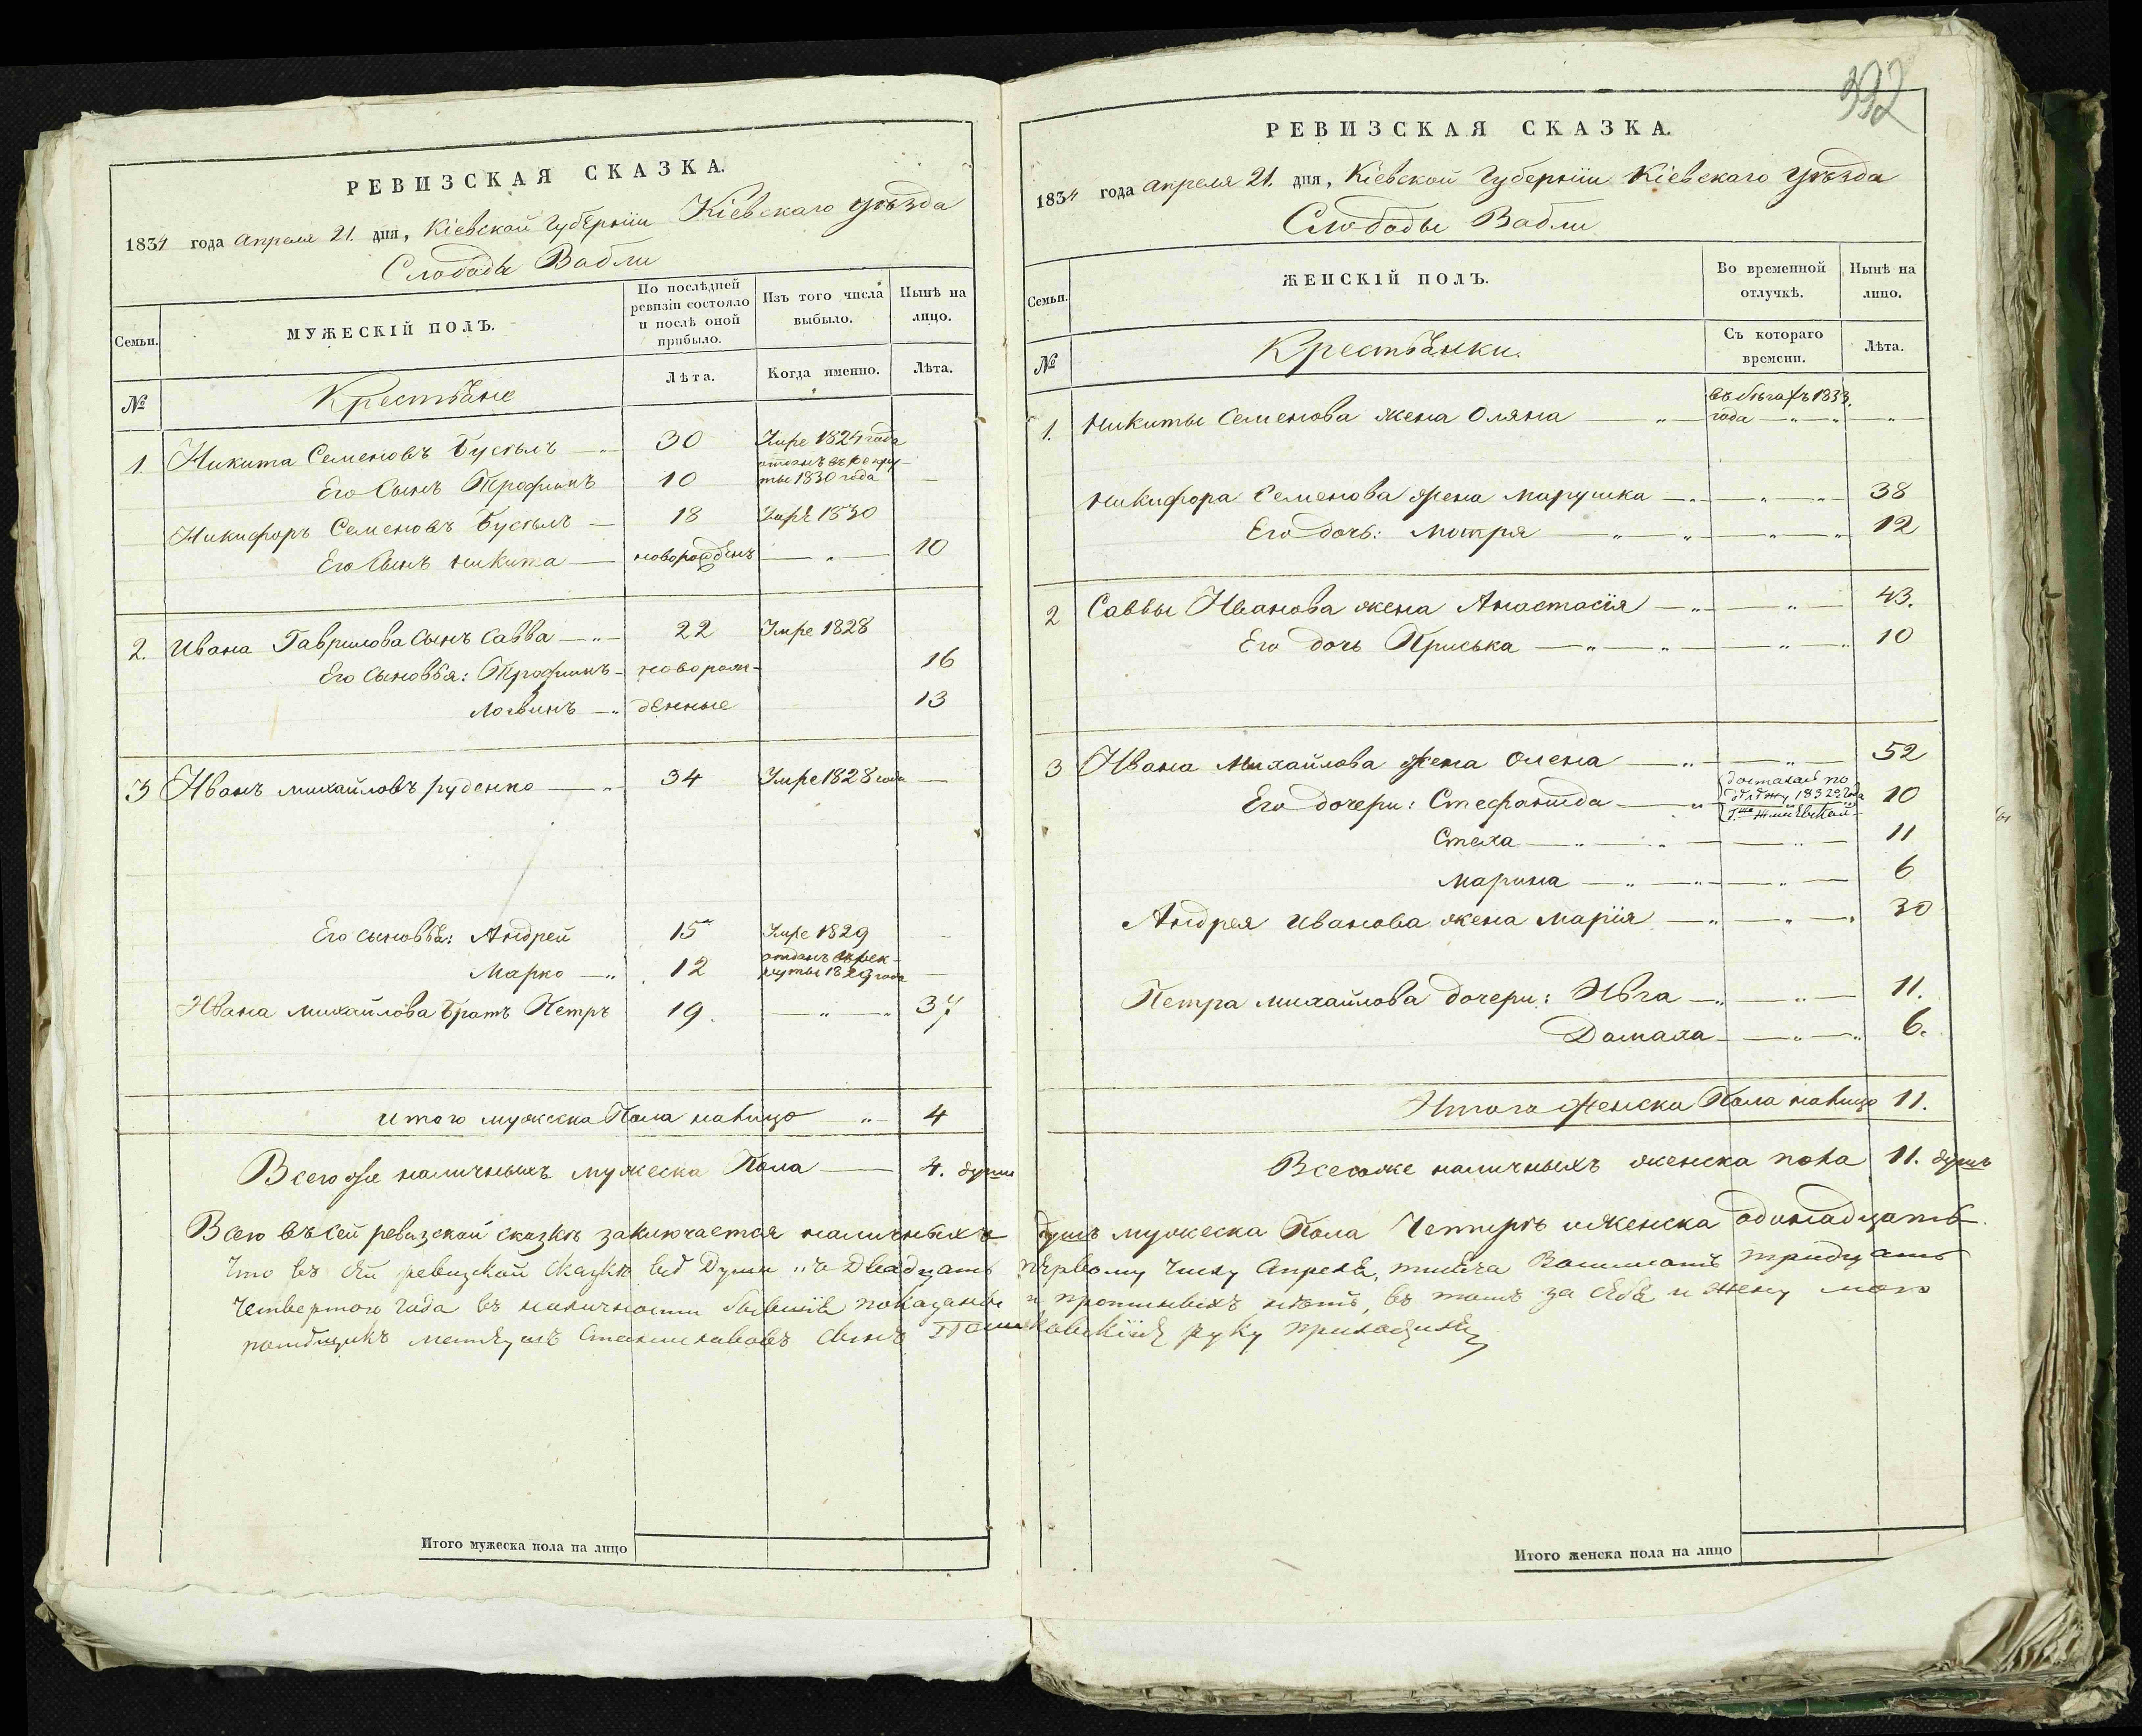 РЕВИЗСКАЯ СКАЗКА.
1834 года Апреля 21. дня, Кіевской Губерніи Кіевскаго уѣзда
Слободы Вабли
Семьи.
МУЖЕСКІЙ ПОЛЪ.
По послѣдней ревизіи состояло и послѣ оной прибыло.
Изъ того числа выбыло.
Нынѣ на лицо.
№
Крестьяне
Лѣта.
Когда именно.
Лѣта.
1. Никита Семеновъ 30 Умре 1824 года
Его Сынъ Трофимъ 10 отданъ въ рекру-
ты 1830 года
Никифоръ Семеновъ 18 Умре 1830
Его Сынъ Никита новорожденъ 10
2. Ивана Гаврилова Сынъ Савва 22 Умре 1828
Его Сыновья: Трофимъ новорож- 16
Логвинъ денные 13
3 Иванъ Михайловъ Руденко 34 Умре 1828 года
Его сыновья: Андрей 15 Умре 1829
Марко 12 отданъ въ рек-
руты 1829 года
Ивана Михайлова Братъ Петръ 19. 37
Итого мужеска Пола налицо 4
Всегоже наличныхъ мужеска Пола 4. души
Всего въ сей ревизской сказкѣ заключается наличныхъ
Что въ сей ревизкой Сказки всѣ Души къ Двадцать
Четвертого Года въ наличности бывшіе показаны
помѣщикъ Станиславовъ Сынъ
Итого мужеска пола на лицо
392
РЕВИЗСКАЯ СКАЗКА.
1834 года Апреля 21. дня, Кіевской Губерніи Кіевскаго Уѣзда
Слободы Вабли
Семьи.
ЖЕНСКІЙ ПОЛЪ.
Во временной отлучкѣ.
Нынѣ на лицо.
№
Крестьянки.
Съ котораго времени.
Лѣта.
1. Никиты Семенова жена Оляна въ бѣгахъ 1833.
года
Никифора Семенова жена Марушка 38
Его дочь: Мотря 12
2 Саввы Иванова жена Анастасія 43.
Его дочь Приська 10
3 Ивана Михайлова жена Олена 52
Его дочери: Стефанида 1832 года 10
Стеха 11
Марина 6
Андрея Иванова жена Марія 30
Петра Михайлова дочери: Ивга 11.
Домаха 6.
Итого Женска Пола налицо 11.
Всегоже наличныхъ женска пола 11. душъ
душъ мужеска Пола Четыре и женска одинадцать.
Первому Числу Апреля, тысяча Восимсотъ тридцать
и прописныхъ нѣтъ, въ томъ за себя и жену мою
руку приложилъ
Итого женска пола на лицо